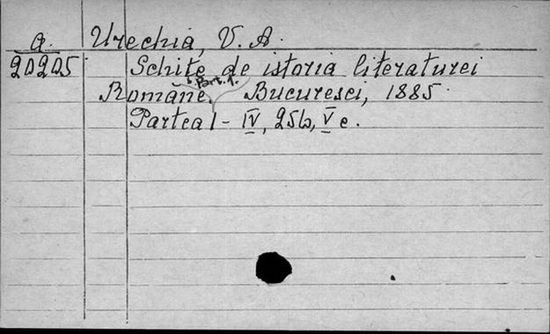 a. Urechia, V. A.
20205 Schițe de istoria literaturei
Române, Bucuresci, 1885.
Partea I - IV, 256, V c.